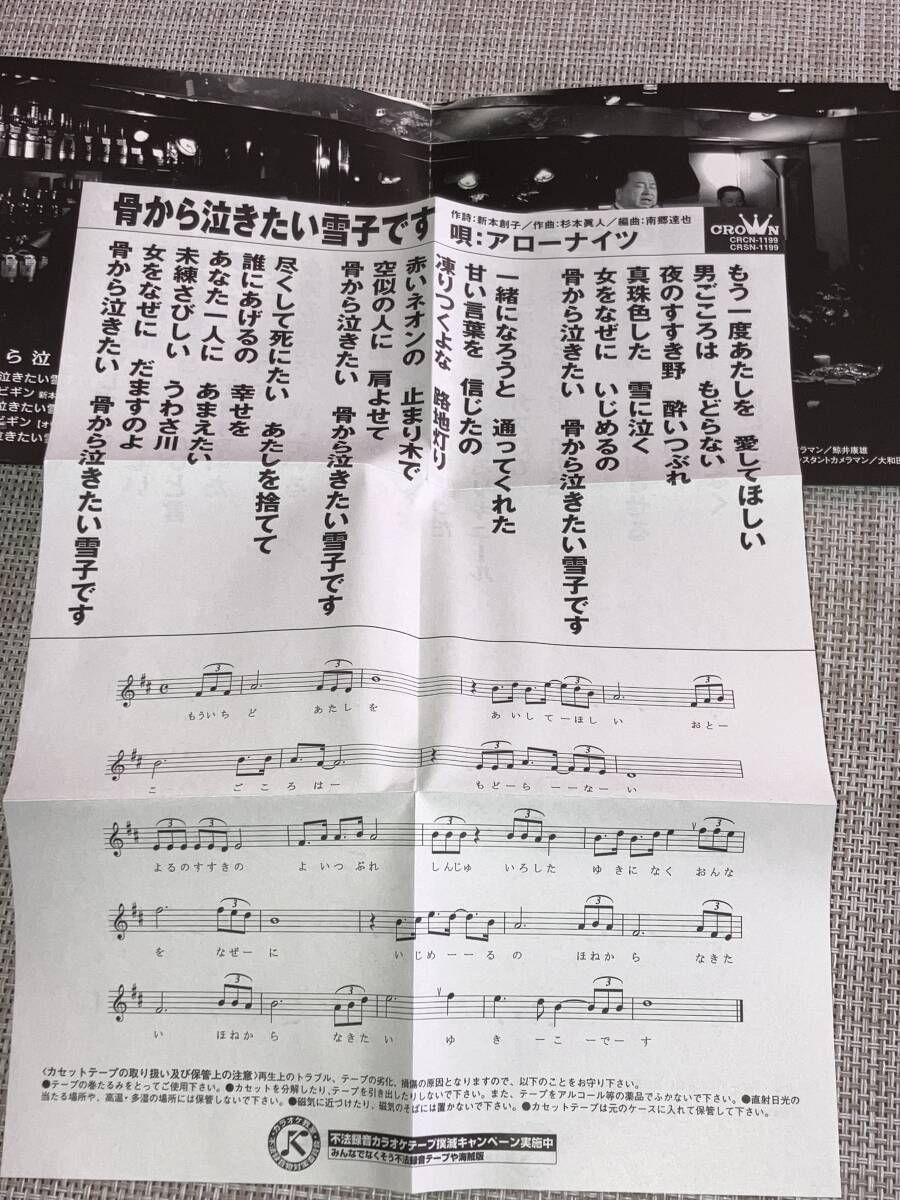 骨から泣きたい雪子です
作詩：新本創子／作曲：杉本眞人／編曲：南郷達也
唄：アローナイツ
CROWN
CRCN-1199
CRSN-1199
もう一度あたしを　愛してほしい
男ごころは　もどらない
夜のすすき野　酔いつぶれ
真珠色した　雪に泣く
女をなぜに　いじめるの
骨から泣きたい　骨から泣きたい雪子です
一緒になろうと　通ってくれた
甘い言葉を　信じたの
凍りつくよな　路地灯り
赤いネオンの　止まり木で
空似の人に　肩よせて
骨から泣きたい　骨から泣きたい雪子です
尽くして死にたい　あたしを捨てて
誰にあげるの　幸せを
あなた一人に　あまえたい
未練さびしい　うわさ川
女をなぜに　だますのよ
骨から泣きたい　骨から泣きたい雪子です
ら泣
泣きたい雪
ビギン 新本
泣きたい雪
ビギン［オ
泣きたい雪
ラマン／鯨井康雄
スタントカメラマン／大和田
もういち ど あたし を あいし てーほし い おとー
こ ごころ はー もどーち ーーなー い
よるのすすきの よ いつ ぶれ しんじゅ いろした ゆきに なく おんな
を なぜー に いじめ ーーる の ほねから なきた
い ほねから なきたい ゆ き ーこ ーで ー す
〈カセットテープの取り扱い及び保管上の注意〉再生上のトラブル、テープの劣化、損傷の原因となりますので、以下のことをお守り下さい。
●テープの巻たるみをとってご使用下さい。●カセットを分解したり、テープを引き出したりしないで下さい。また、テープをアルコール等の薬品でふかないで下さい。●直射日光の
当たる場所や、高温・多湿の場所には保管しないで下さい。●磁気に近づけたり、磁気のそばには置かないで下さい。●カセットテープは元のケースに入れて保管して下さい。
K
不法録音カラオケテープ撲滅キャンペーン実施中
みんなでなくそう不法録音テープや海賊版